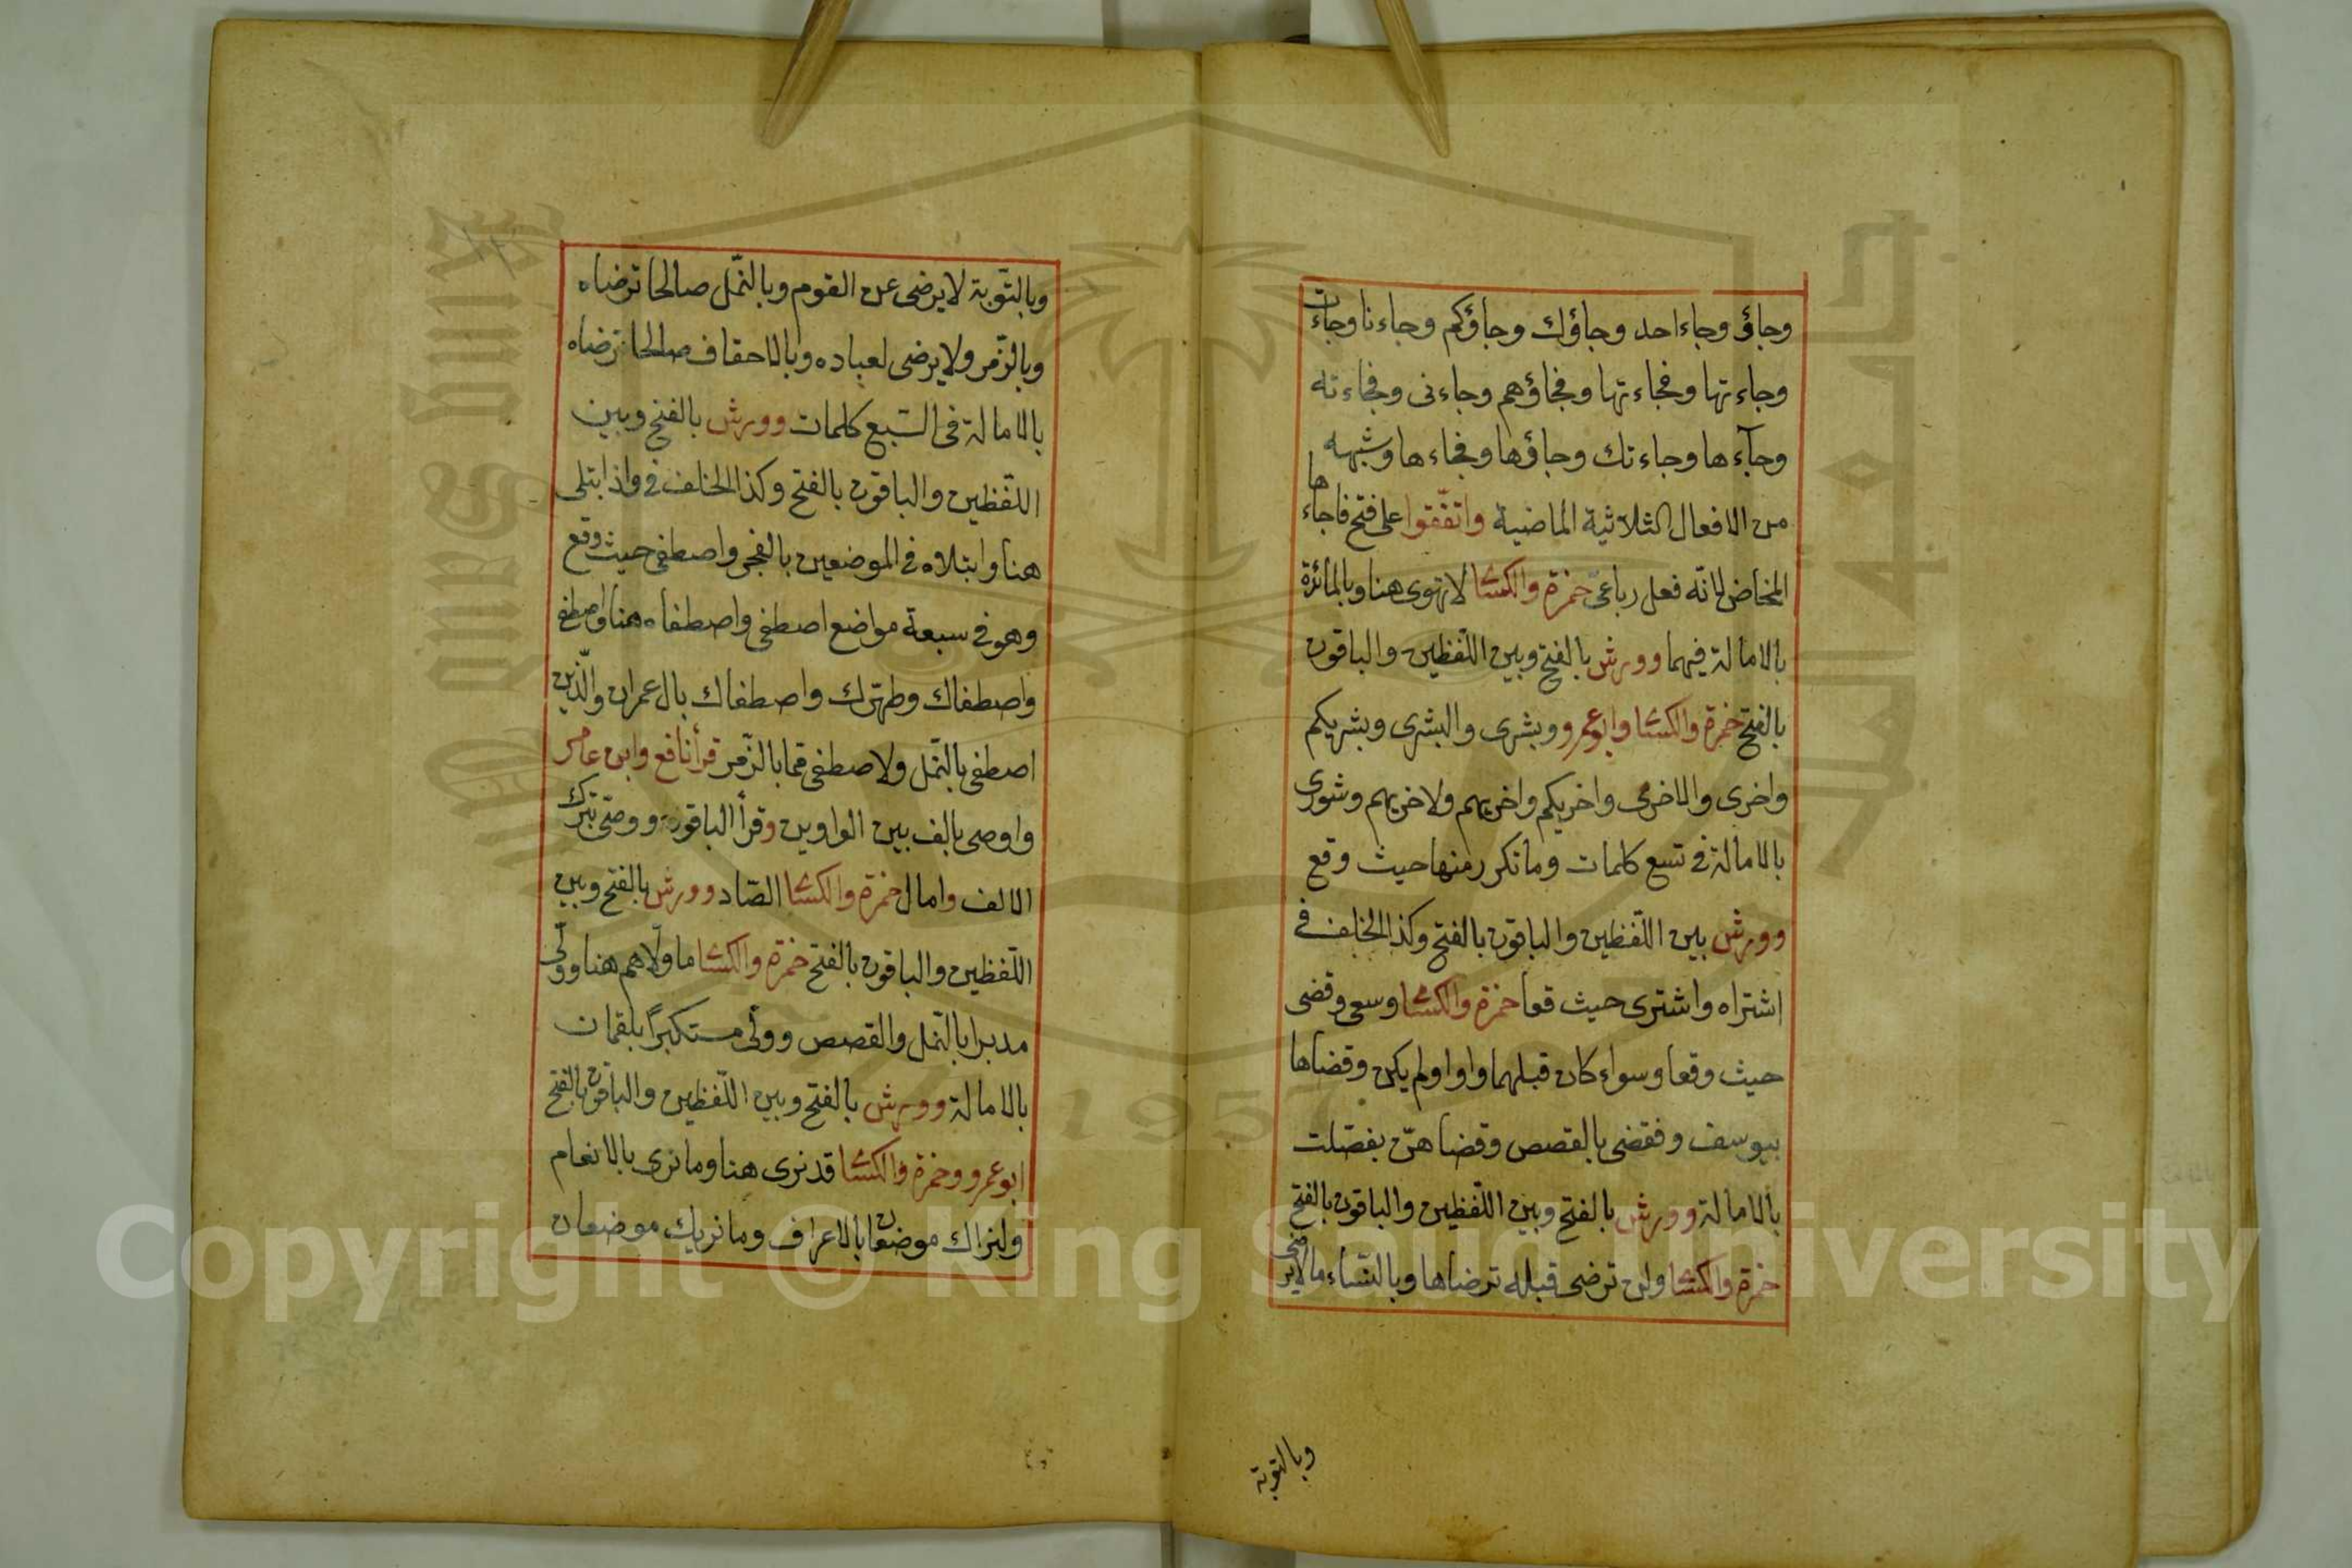 وجاؤ وجاء احد وجاؤك وجاؤكم وجاءنا وجاءت
وجاءتها وفجاءتها وفجاؤهم وجاءنى وفجاءته
وجآءها وجاءتك وجاؤها وفجاءها وشبهه
من الافعال الثلاثية الماضية واتفّقوا على فتح فاجاءها
المخاض لانّه فعل رباعى حمزة والكسا لا تهوى هنا وبالمائدة
بالامالة فيهما وورش بالفتح وبين اللّفظين والباقون
بالفتح حمزة والكسا وابوعمرو وبشرى والبشرى وبشريكم
واخرى والاخرى واخريكم واخريهم ولاخريهم وشورى
بالامالة فى تسع كلمات وما تكرر منها حيث وقع
وورش بين اللّفظين والباقون بالفتح وكذا الخلف فى
اشتراه واشترى حيث قعا حمزة والكسا وسعى وقضى
حيث وقعا وسواء كان قبلهما واو اولم يكن وقضاها
بيوسف وفقضى بالقصص وقضاهنّ بفصّلت
بالامالة وورش بالفتح وبين اللّفظين والباقون بالفتح
حمزة والكسا ولن ترضى قبله ترضاها وبالنّساء مالايرضى
وبالتوبة
وبالتّوبة لا يرضى عن القوم وبالنّمل صالحا ترضاه
وبالزّمر ولا يرضى لعباده وبالاحقاف صالحا ترضاه
بالامالة فى السّبع كلمات وورش بالفتح وبين
اللّفظين والباقون بالفتح وكذا الخلف فى واذ ابتلى
هنا وابتلاه فى الموضعين بالفجر واصطفى حيث وقع
وهو فى سبعة مواضع اصطفى واصطفاه هنا واصطفى
واصطفاك وطهّرك واصطفاك بال عمران والّذين
اصطفى بالنّمل ولاصطفى ممّا بالزّمر قرأ نافع وابن عامر
واوصى بالف بين الواوين وقرأ الباقون ووصّى بترك
الالف وامال حمزة والكسا الصّاد وورش بالفتح وبين
اللّفظين والباقون بالفتح حمزة والكسا ما ولّاهم هنا وولّى
مدبرا بالنّمل والقصص وولّى مستكبرًا بلقمان
بالامالة وورش بالفتح وبين اللّفظين والباقون بالفتح
ابوعمرو وحمزة والكسا قد نرى هنا وما نرى بالانعام
ولنراك موضعان بالاعراف وما نريك موضعان
Copyright © King Saud University
1957